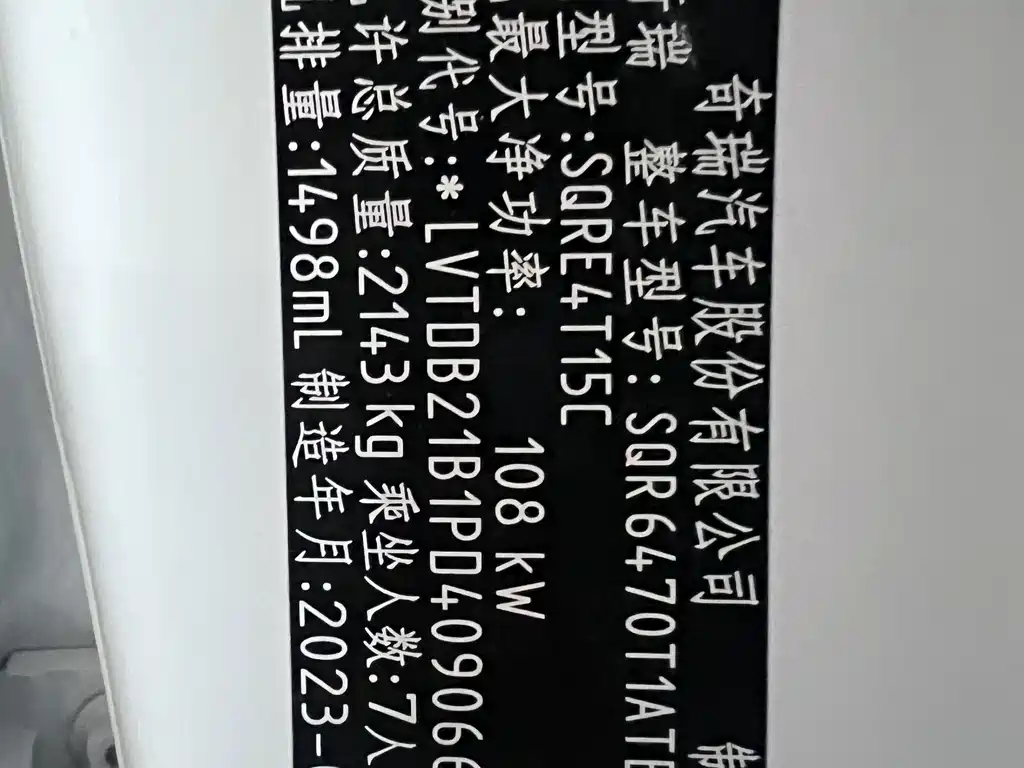 奇瑞汽车股份有限公司 制
瑞 整车型号:SQR6470T1ATE
型号:SQRE4T15C
最大净功率: 108 kW
别代号:*LVTDB21B1PD409066
许总质量:2143kg 乘坐人数:7人
排量:1498mL 制造年月:2023-